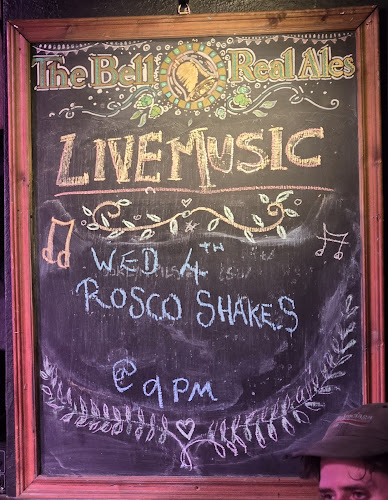 The Bell Real Ales
LIVE MUSIC
WED 4TH
ROSCO SHAKES
@ 9PM